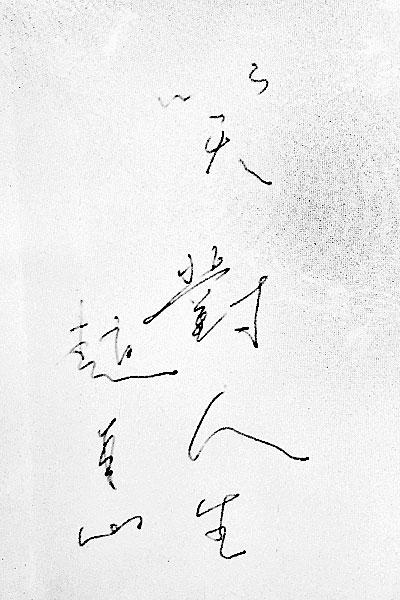 笑對人生
趙山